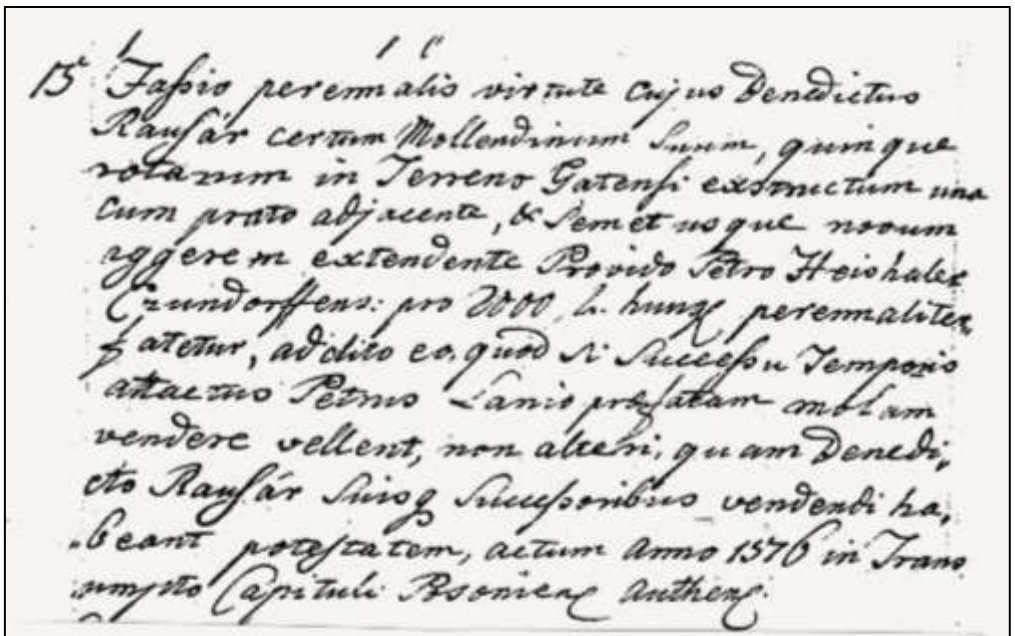 15 Fassio perennalis virtute Cujus Benedictus
Rausár certum Mollendinum Suum, quinque
rotarum in Terreno Gatensi exstructum una
cum prato adjacente, & semet usque novum
aggerem extendente Provido Petro Heishaler
Czundorffens: pro 2000 h. hung perennaliter
fatetur, addito eo, quod si Successu Temporis
attactus Petrus Lanio præfatam molam
vendere vellent, non alteri, quam Benedi,
cto Rausár Suisq Successoribus vendendi ha,
beant potestatem, actum Anno 1576 in Trans
umpto Capituli Posoniens Authen.